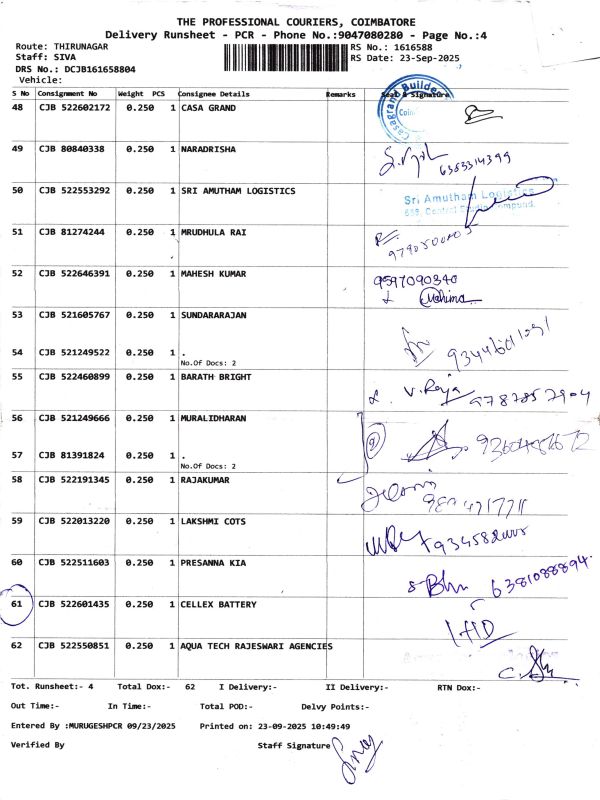 THE PROFESSIONAL COURIERS, COIMBATORE
Delivery Runsheet - PCR - Phone No.:9047080280 - Page No.:4
Route: THIRUNAGAR
Staff: SIVA
DRS No.: DCJB161658804
Vehicle:
RS No.: 1616588
RS Date: 23-Sep-2025
S No Consignment No Weight PCS Consignee Details Remarks Seal & Signature
48 CJB 522602172 0.250 1 CASA GRAND
Casagrand Builder
Coim
49 CJB 80840338 0.250 1 NARADRISHA
6383314399
50 CJB 522553292 0.250 1 SRI AMUTHAM LOGISTICS
Sri Amutham Logistics
51 CJB 81274244 0.250 1 MRUDHULA RAI
52 CJB 522646391 0.250 1 MAHESH KUMAR
9597090340
53 CJB 521605767 0.250 1 SUNDARARAJAN
54 CJB 521249522 0.250 1 .
No.Of Docs: 2
55 CJB 522460899 0.250 1 BARATH BRIGHT
V. Raja 9787857904
56 CJB 521249666 0.250 1 MURALIDHARAN
57 CJB 81391824 0.250 1 .
No.Of Docs: 2
58 CJB 522191345 0.250 1 RAJAKUMAR
59 CJB 522013220 0.250 1 LAKSHMI COTS
60 CJB 522511603 0.250 1 PRESANNA KIA
6381088894
61 CJB 522601435 0.250 1 CELLEX BATTERY
62 CJB 522550851 0.250 1 AQUA TECH RAJESWARI AGENCIES
Tot. Runsheet:- 4 Total Dox:- 62 I Delivery:- II Delivery:- RTN Dox:-
Out Time:- In Time:- Total POD:- Delvy Points:-
Entered By :MURUGESHPCR 09/23/2025 Printed on: 23-09-2025 10:49:49
Verified By Staff Signature